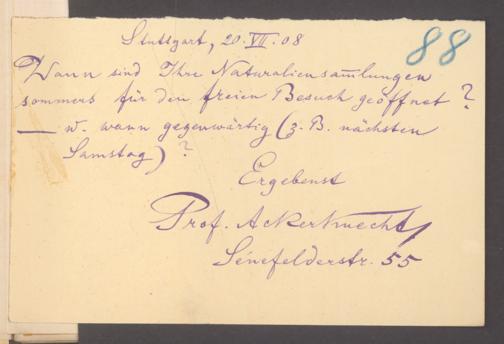 Stuttgart, 20.VII.08
88
Wann sind Ihre Naturaliensam̄lungen
sommers für den freien Besuch geöffnet?
— w. wann gegenwärtig (z. B. nächsten
Samstag)?
Ergebenst
Prof. Ackerknecht,
Senefelderstr. 55